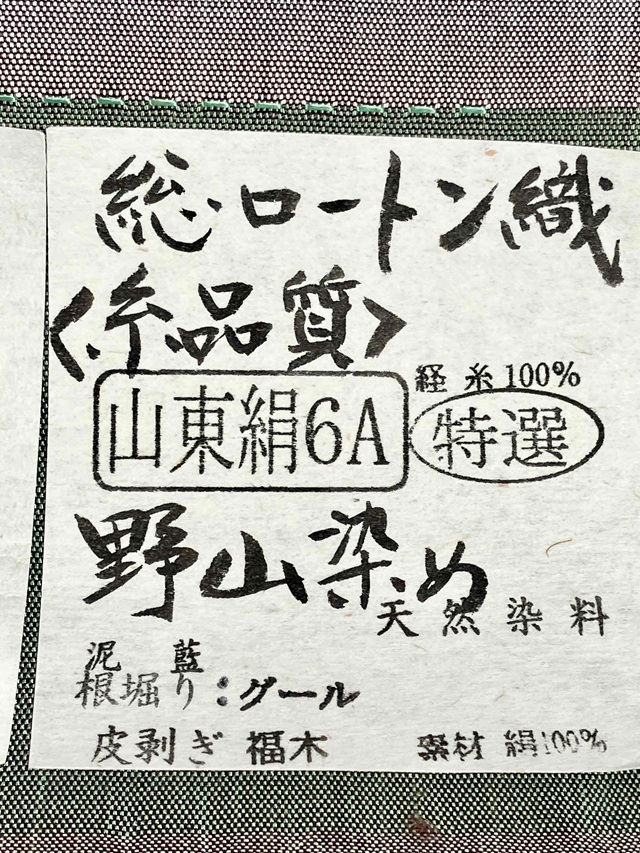 総ロートン織
〈糸品質〉
経糸100%
山東絹6A 特選
野山染め
天然染料
泥 藍
根堀り:グール
皮剥ぎ 福木 素材 絹100%